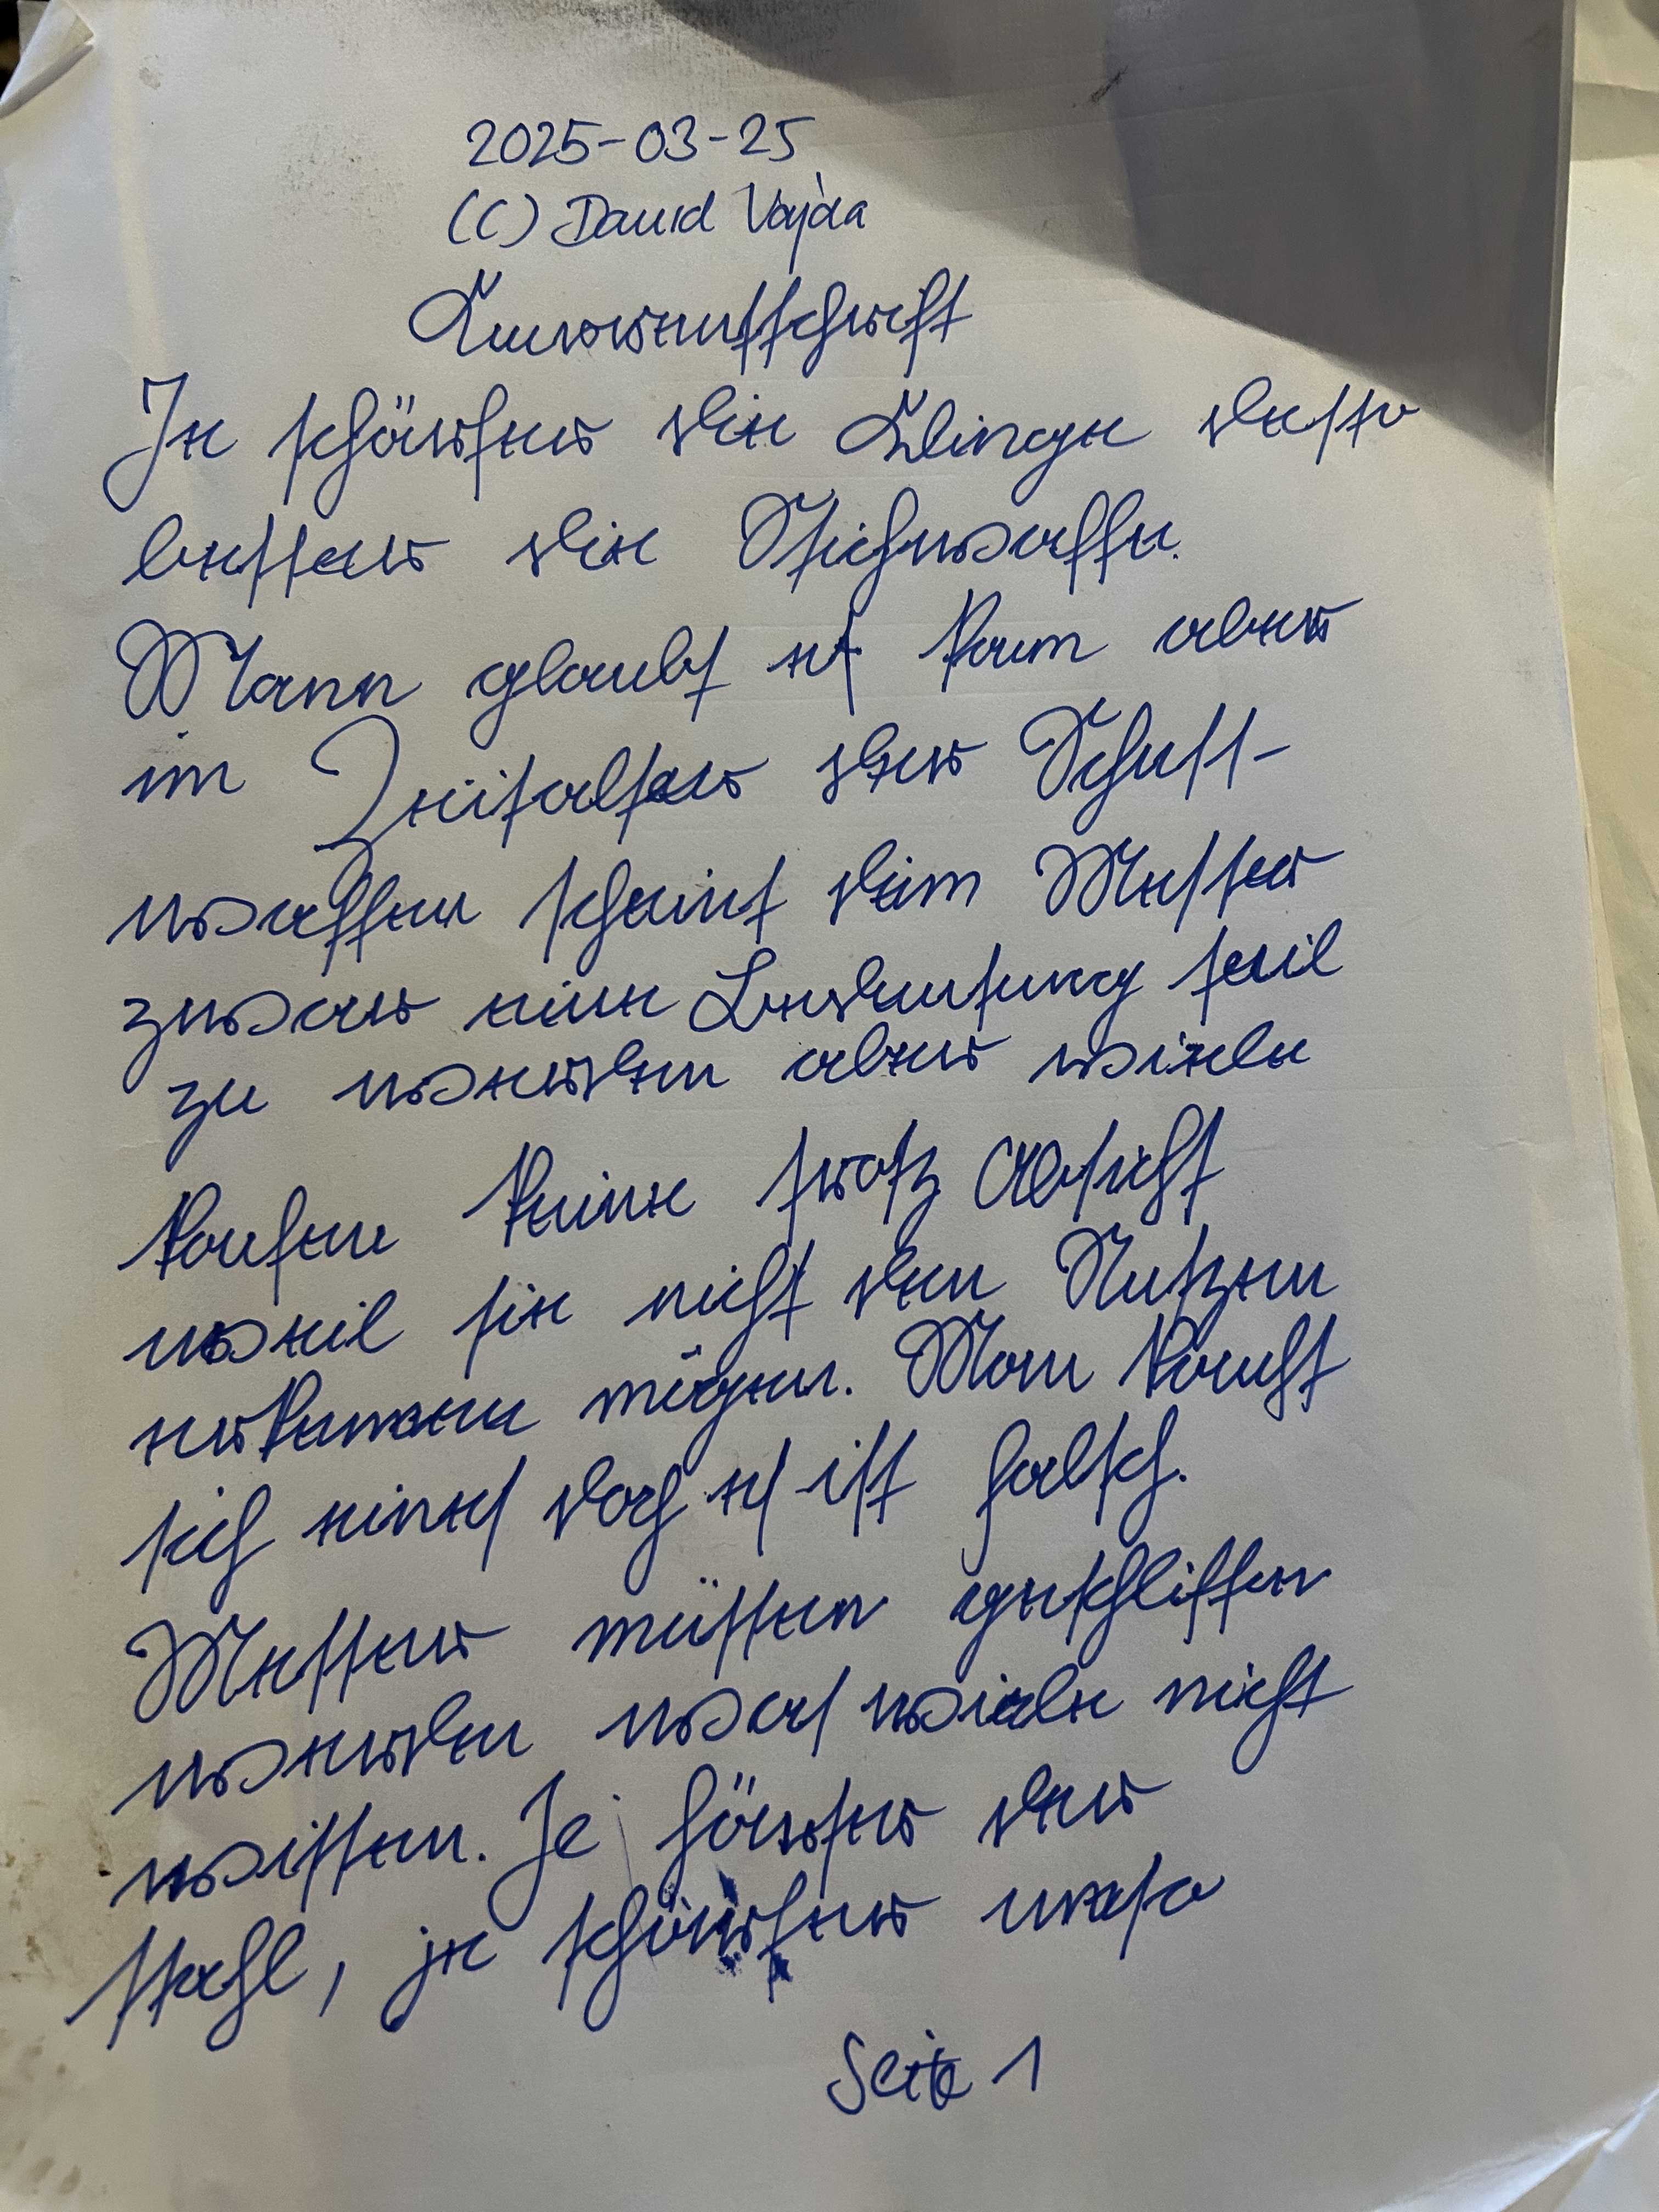 2025-03-25
(C) David Vajda
Kurrentschrift
Je schärfer die Klinge desto
besser die Stichwaffe.
Mann glaubt es kaum aber
im Zeitalter der Schuss-
waffen scheint dem Messer
zuwar eine Bedeutung teil
zu werden aber viele
kaufen keine trotz Absicht
weil sie nicht den Nutzen
erkennen mögen. Man kauft
sich eines doch es ist falsch.
Messer müssen geschliffen
werden was viele nicht
wissen. Je härter der
Stahl, je schärfer
Seite 1